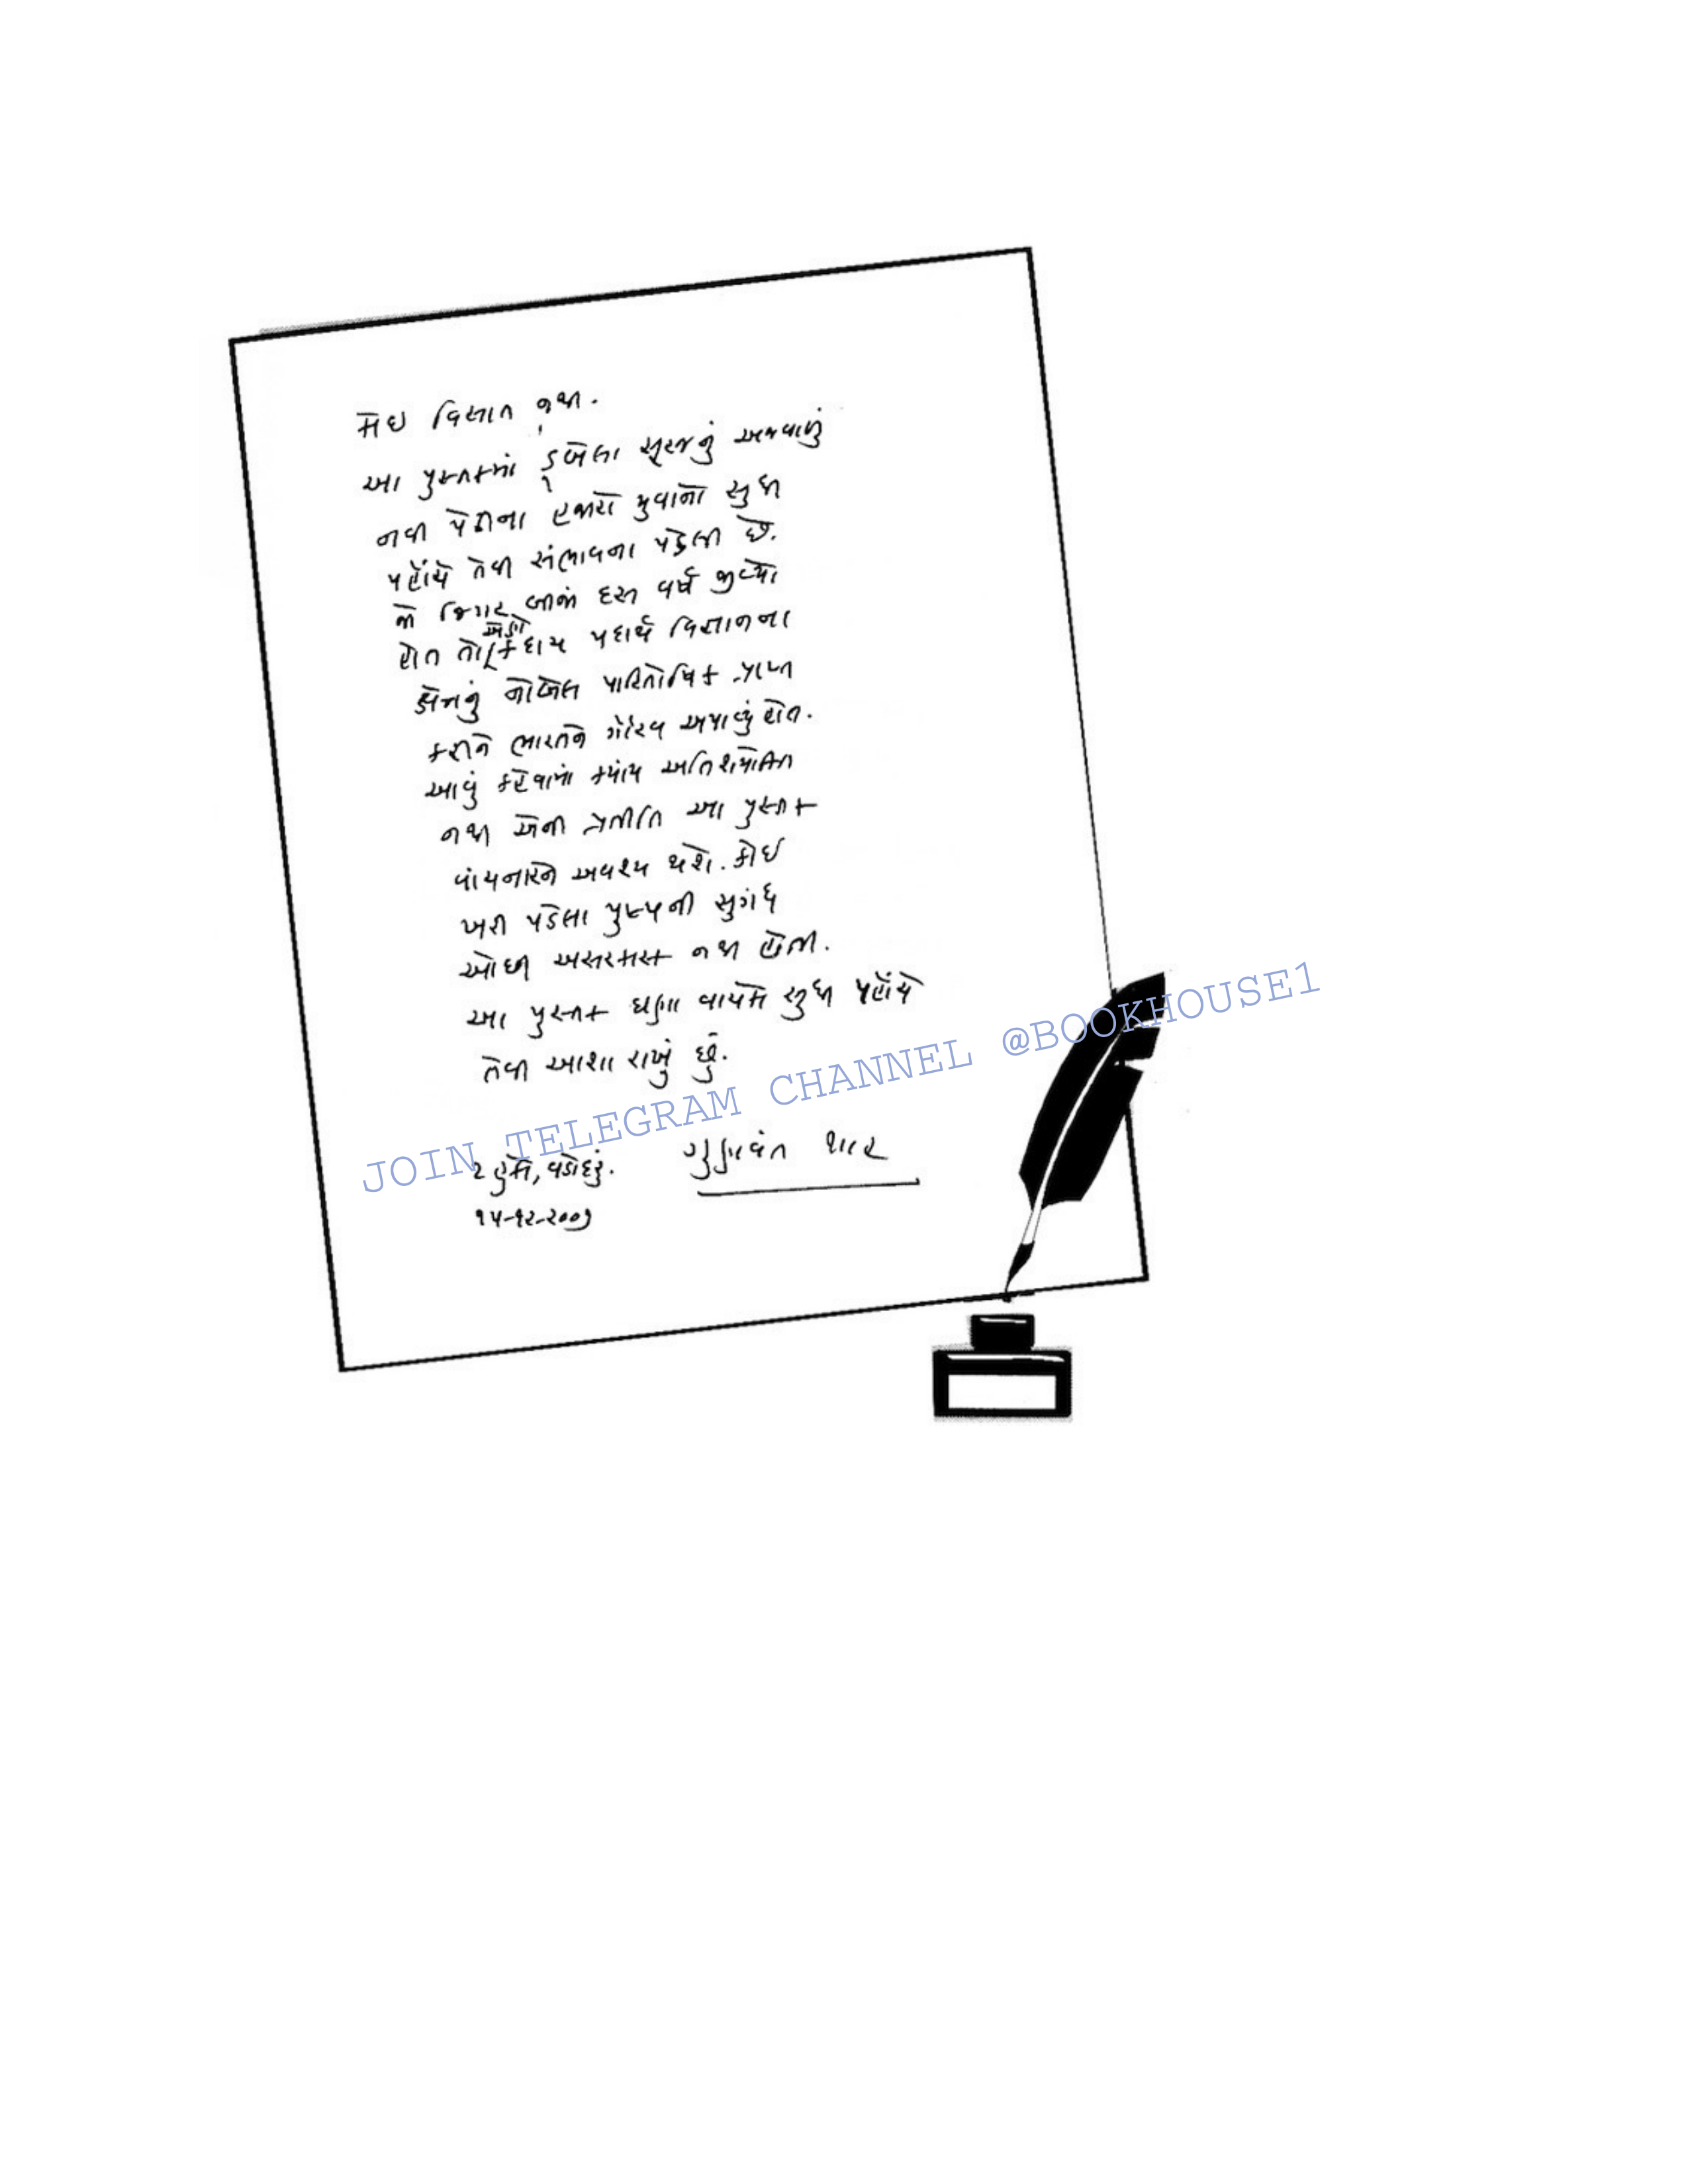 આ પુસ્તકમાં ડૂબેલા સૂરજનું અજવાળું
નવી પેઢીના હજારો યુવાનો સુધી
પહોંચે તેવી સંભાવના પડેલી છે.
જો જિગર બીજાં દસ વર્ષ જીવ્યો
હોત તો એણે કદાચ પદાર્થ વિજ્ઞાનના
ક્ષેત્રનું નોબેલ પારિતોષિક પ્રાપ્ત
કરીને ભારતને ગૌરવ અપાવ્યું હોત.
આવું કહેવામાં ક્યાંય અતિશયોક્તિ
નથી એની પ્રતીતિ આ પુસ્તક
વાંચનારને અવશ્ય થશે. કોઈ
ખરી પડેલા પુષ્પની સુગંધ
ઓછી અસરકારક નથી હોતી.
આ પુસ્તક ઘણા વાચકો સુધી પહોંચે
તેવી આશા રાખું છું.
ગુણવંત શાહ
ટહુકો, વડોદરા.
૧૫-૧૨-૨૦૦૧
JOIN TELEGRAM CHANNEL @BOOKHOUSE1